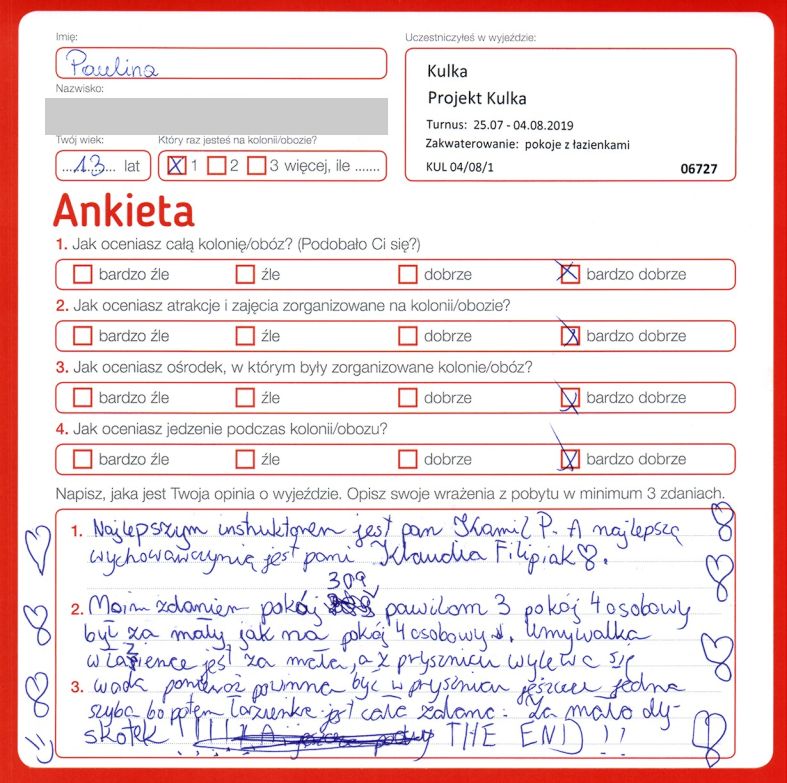 Imię:
Paulina
Nazwisko:
Twój wiek:
...13... lat
Który raz jesteś na kolonii/obozie?
1 2 3 więcej, ile .......
Uczestniczyłeś w wyjeździe:
Kulka
Projekt Kulka
Turnus: 25.07 - 04.08.2019
Zakwaterowanie: pokoje z łazienkami
KUL 04/08/1 06727
Ankieta
1. Jak oceniasz całą kolonię/obóz? (Podobało Ci się?)
bardzo źle źle dobrze bardzo dobrze
2. Jak oceniasz atrakcje i zajęcia zorganizowane na kolonii/obozie?
bardzo źle źle dobrze bardzo dobrze
3. Jak oceniasz ośrodek, w którym były zorganizowane kolonie/obóz?
bardzo źle źle dobrze bardzo dobrze
4. Jak oceniasz jedzenie podczas kolonii/obozu?
bardzo źle źle dobrze bardzo dobrze
Napisz, jaka jest Twoja opinia o wyjeździe. Opisz swoje wrażenia z pobytu w minimum 3 zdaniach.
1. Najlepszym instruktorem jest pan Kamil P. A najlepszą
wychowawczynią jest pani Klaudia Filipiak.
309
2. Moim zdaniem pokój pawilom 3 pokój 4 osobowy
był za mały jak na pokój 4 osobowy. Umywalka
w łazience jest za mała, a z prysznicu wylewa się
3. woda ponieważ powinna być w prysznicu jeszcze jedna
szyba bo potem łazienka jest cała zalana. Za mało dy-
skotek !!!! THE END !!